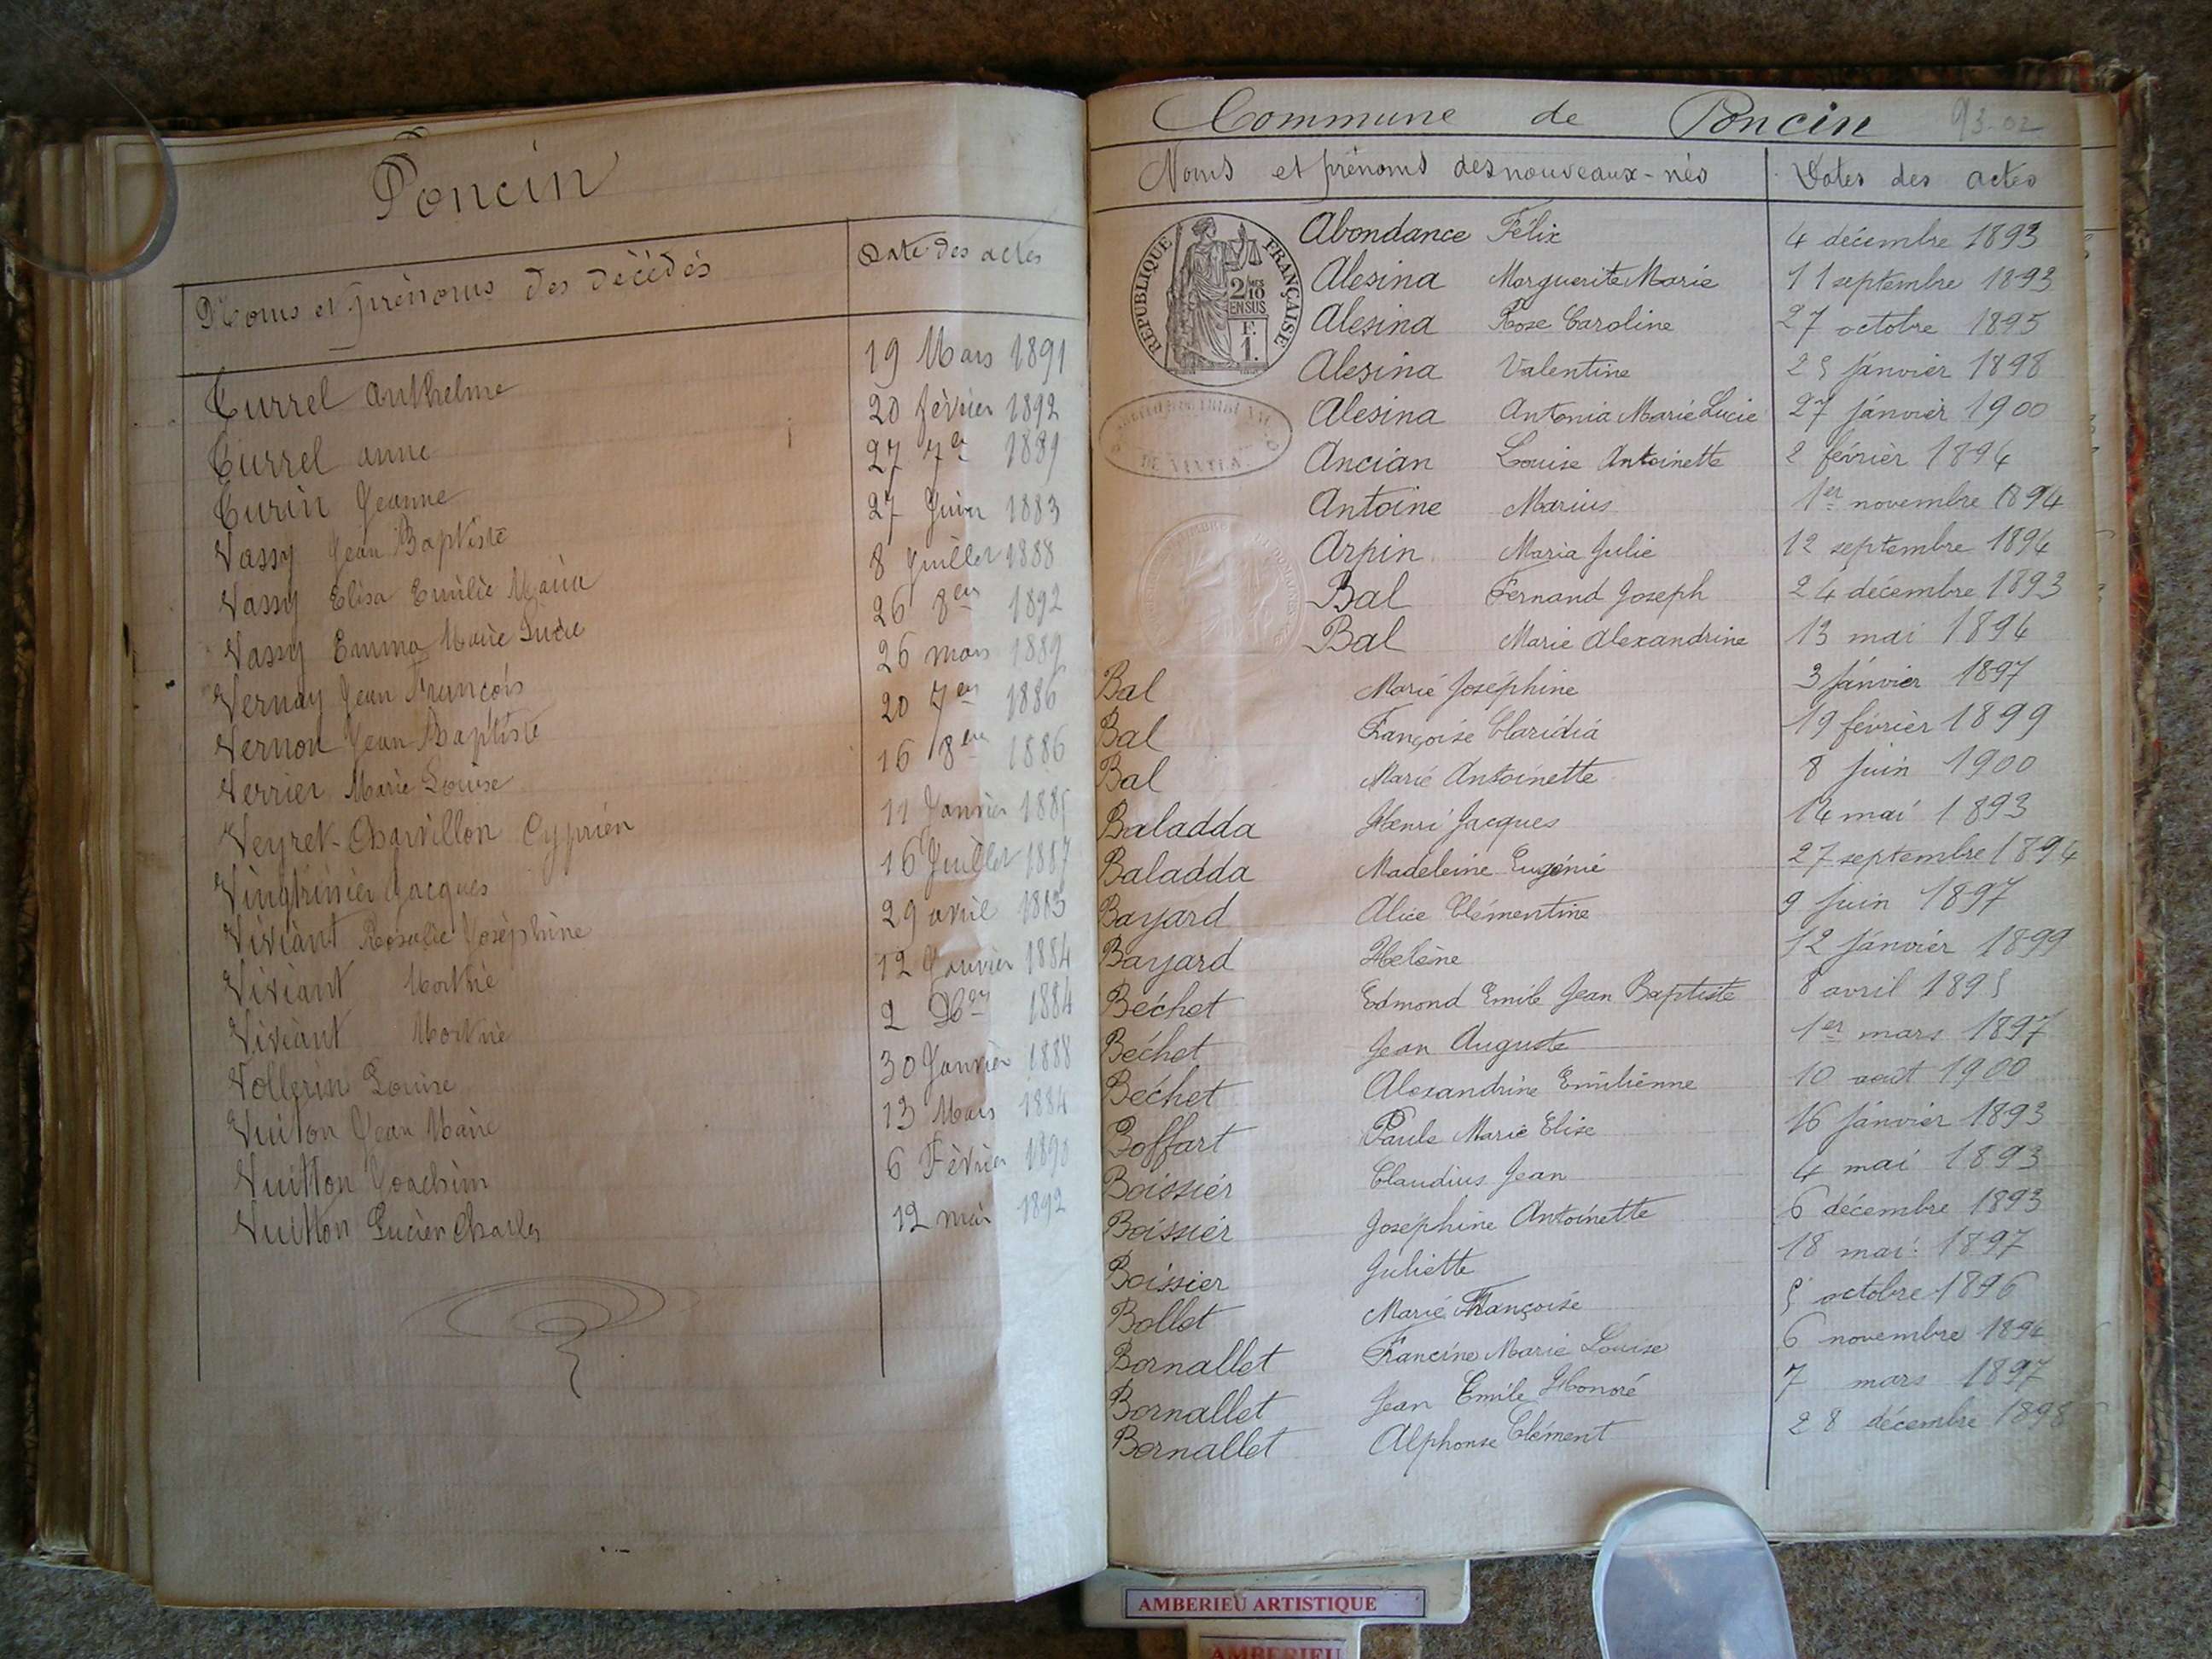 Poncin
Noms et prénoms des décédés Date des actes
Currel Anthelme 19 Mars 1891
Currel anne 20 février 1892
Curin Jeanne 27 7er 1889
Vassy Jean Baptiste 27 Juin 1883
Vassy Elisa Emilie Maria 8 Juillet 1888
Vassy Emma Marie Lucie 26 8er 1892
Vernay Jean François 26 mars 1889
Vernon Jean Baptiste 20 7er 1886
Verrier Marie Louise 16 8er 1886
Veyret-Charvillon Cyprien 11 Janvier 1885
Vingtrinier Jacques 16 Juillet 1887
Viviant Rosalie Joséphine 29 avril 1883
Viviant 12 Janvier 1884
Viviant 2 1884
Vollerin Louise 30 Janvier 1888
Vuiton Jean Marie 13 Mars 1884
Vuitton Joachim 6 Février 1890
Vuitton Lucien Charles 12 mai 1892
Commune de Poncin 93-02
Noms et prénoms des nouveaux-nés Dates des actes
REPUBLIQUE FRANÇAISE
2/10 MES EN SUS
F. 1.
Abondance Félix 4 décembre 1893
Alesina Marguerite Marie 11 septembre 1893
Alesina Rose Caroline 27 octobre 1895
Alesina Valentine 25 janvier 1898
Alesina Antonia Marie Lucie 27 janvier 1900
Ancian Louise Antoinette 2 février 1894
Antoine Marius 1er novembre 1894
Arpin Maria Julie 12 septembre 1894
Bal Fernand Joseph 24 décembre 1893
Bal Marie Alexandrine 13 mai 1894
Bal Marie Joséphine 3 janvier 1897
Bal Françoise Claridia 19 février 1899
Bal Marie Antoinette 8 juin 1900
Baladda Henri Jacques 14 mai 1893
Baladda Madeleine Eugénie 27 septembre 1894
Bayard Alice Clémentine 9 juin 1897
Bayard Helène 12 janvier 1899
Béchet Edmond Emile Jean Baptiste 8 avril 1895
Béchet Jean Auguste 1er mars 1897
Béchet Alexandrine Emilienne 10 août 1900
Boffart Paule Marie Elise 16 janvier 1893
Boissier Claudius Jean 4 mai 1893
Boissier Joséphine Antoinette 6 décembre 1893
Boissier Juliette 18 mai 1897
Bollet Marie Françoise 5 octobre 1896
Bornallet Francine Marie Louise 6 novembre 1894
Bornallet Jean Emile Honoré 7 mars 1897
Bornallet Alphonse Clément 28 décembre 1898
AMBERIEU ARTISTIQUE
AMBERIEU